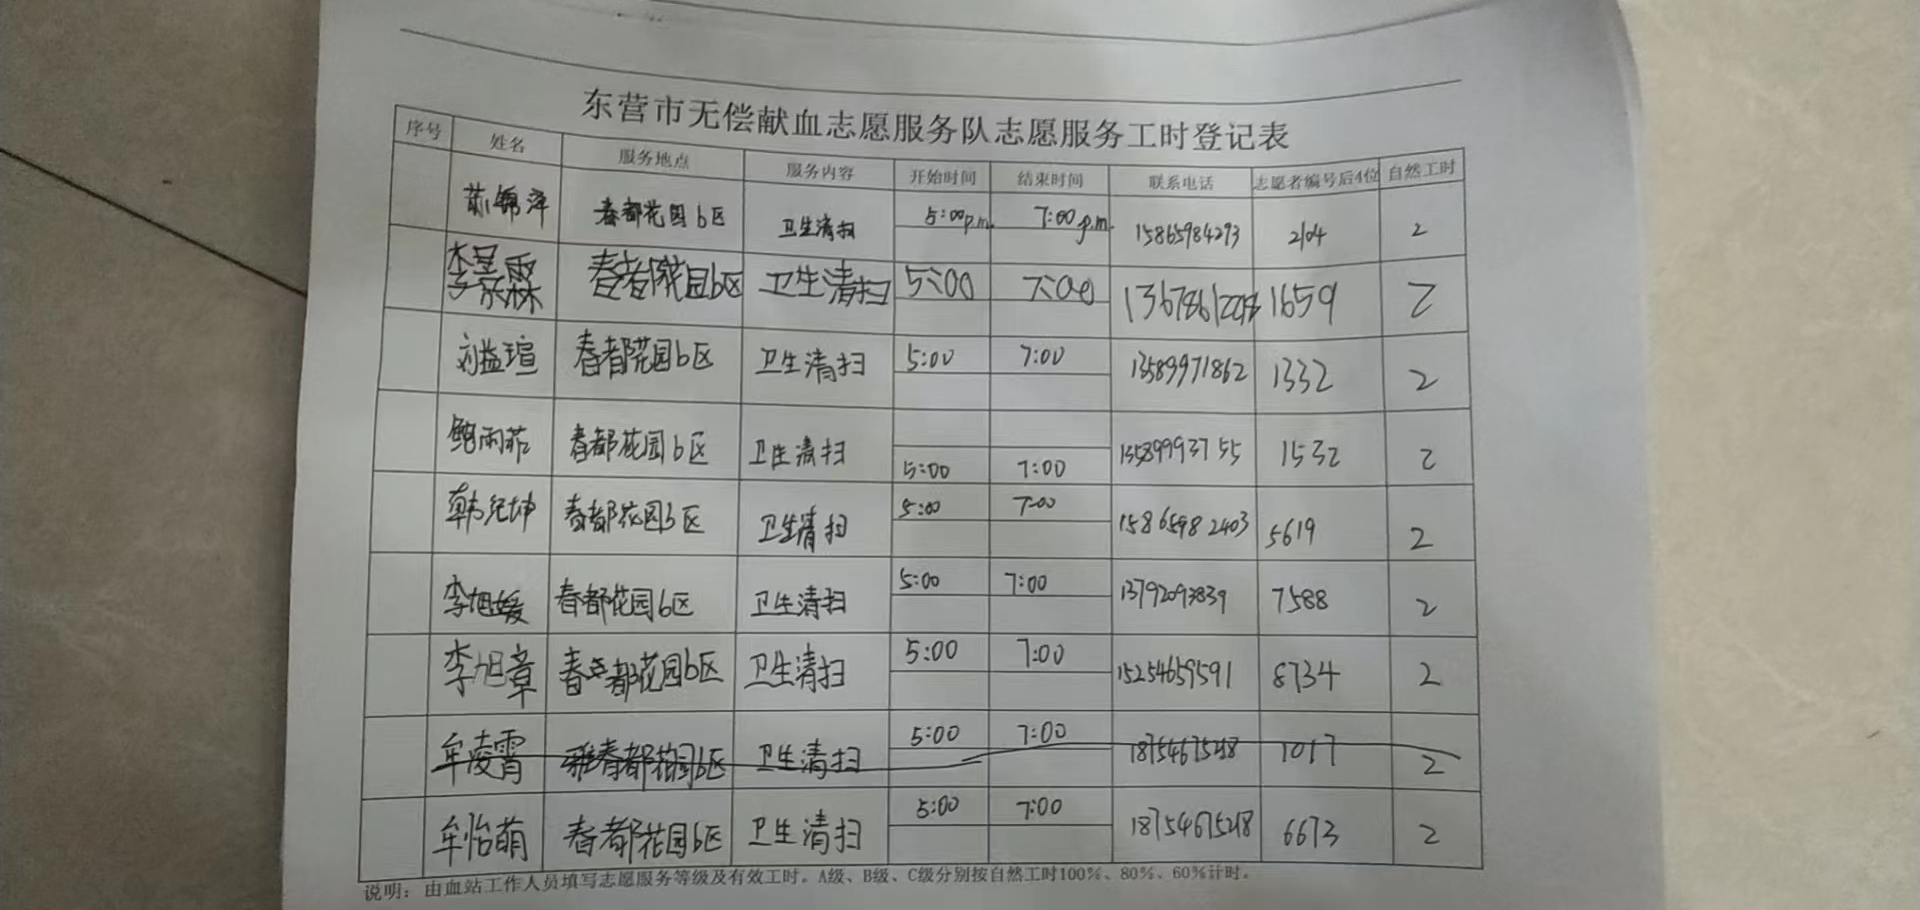 东营市无偿献血志愿服务队志愿服务工时登记表
序号 姓名 服务地点 服务内容 开始时间 结束时间 联系电话 志愿者编号后4位 自然工时
锦泽 春都花园b区 卫生清扫 5:00p.m. 7:00p.m. 15865984293 2104 2
李景霖 春都花园b区 卫生清扫 5:00 7:00 1659 2
刘益瑄 春都花园b区 卫生清扫 5:00 7:00 13589971862 1332 2
鲍雨菲 春都花园b区 卫生清扫 5:00 7:00 13589993755 1532 2
韩纪坤 春都花园b区 卫生清扫 5:00 7:00 15865982403 5619 2
李旭媛 春都花园b区 卫生清扫 5:00 7:00 13792093839 7588 2
李旭章 春都花园b区 卫生清扫 5:00 7:00 15254659591 8734 2
牟凌霄 春都花园b区 卫生清扫 5:00 7:00 18754675218 1017 2
牟怡萌 春都花园b区 卫生清扫 5:00 7:00 18754675218 6673 2
说明：由血站工作人员填写志愿服务等级及有效工时。A级、B级、C级分别按自然工时100%、80%、60%计时。